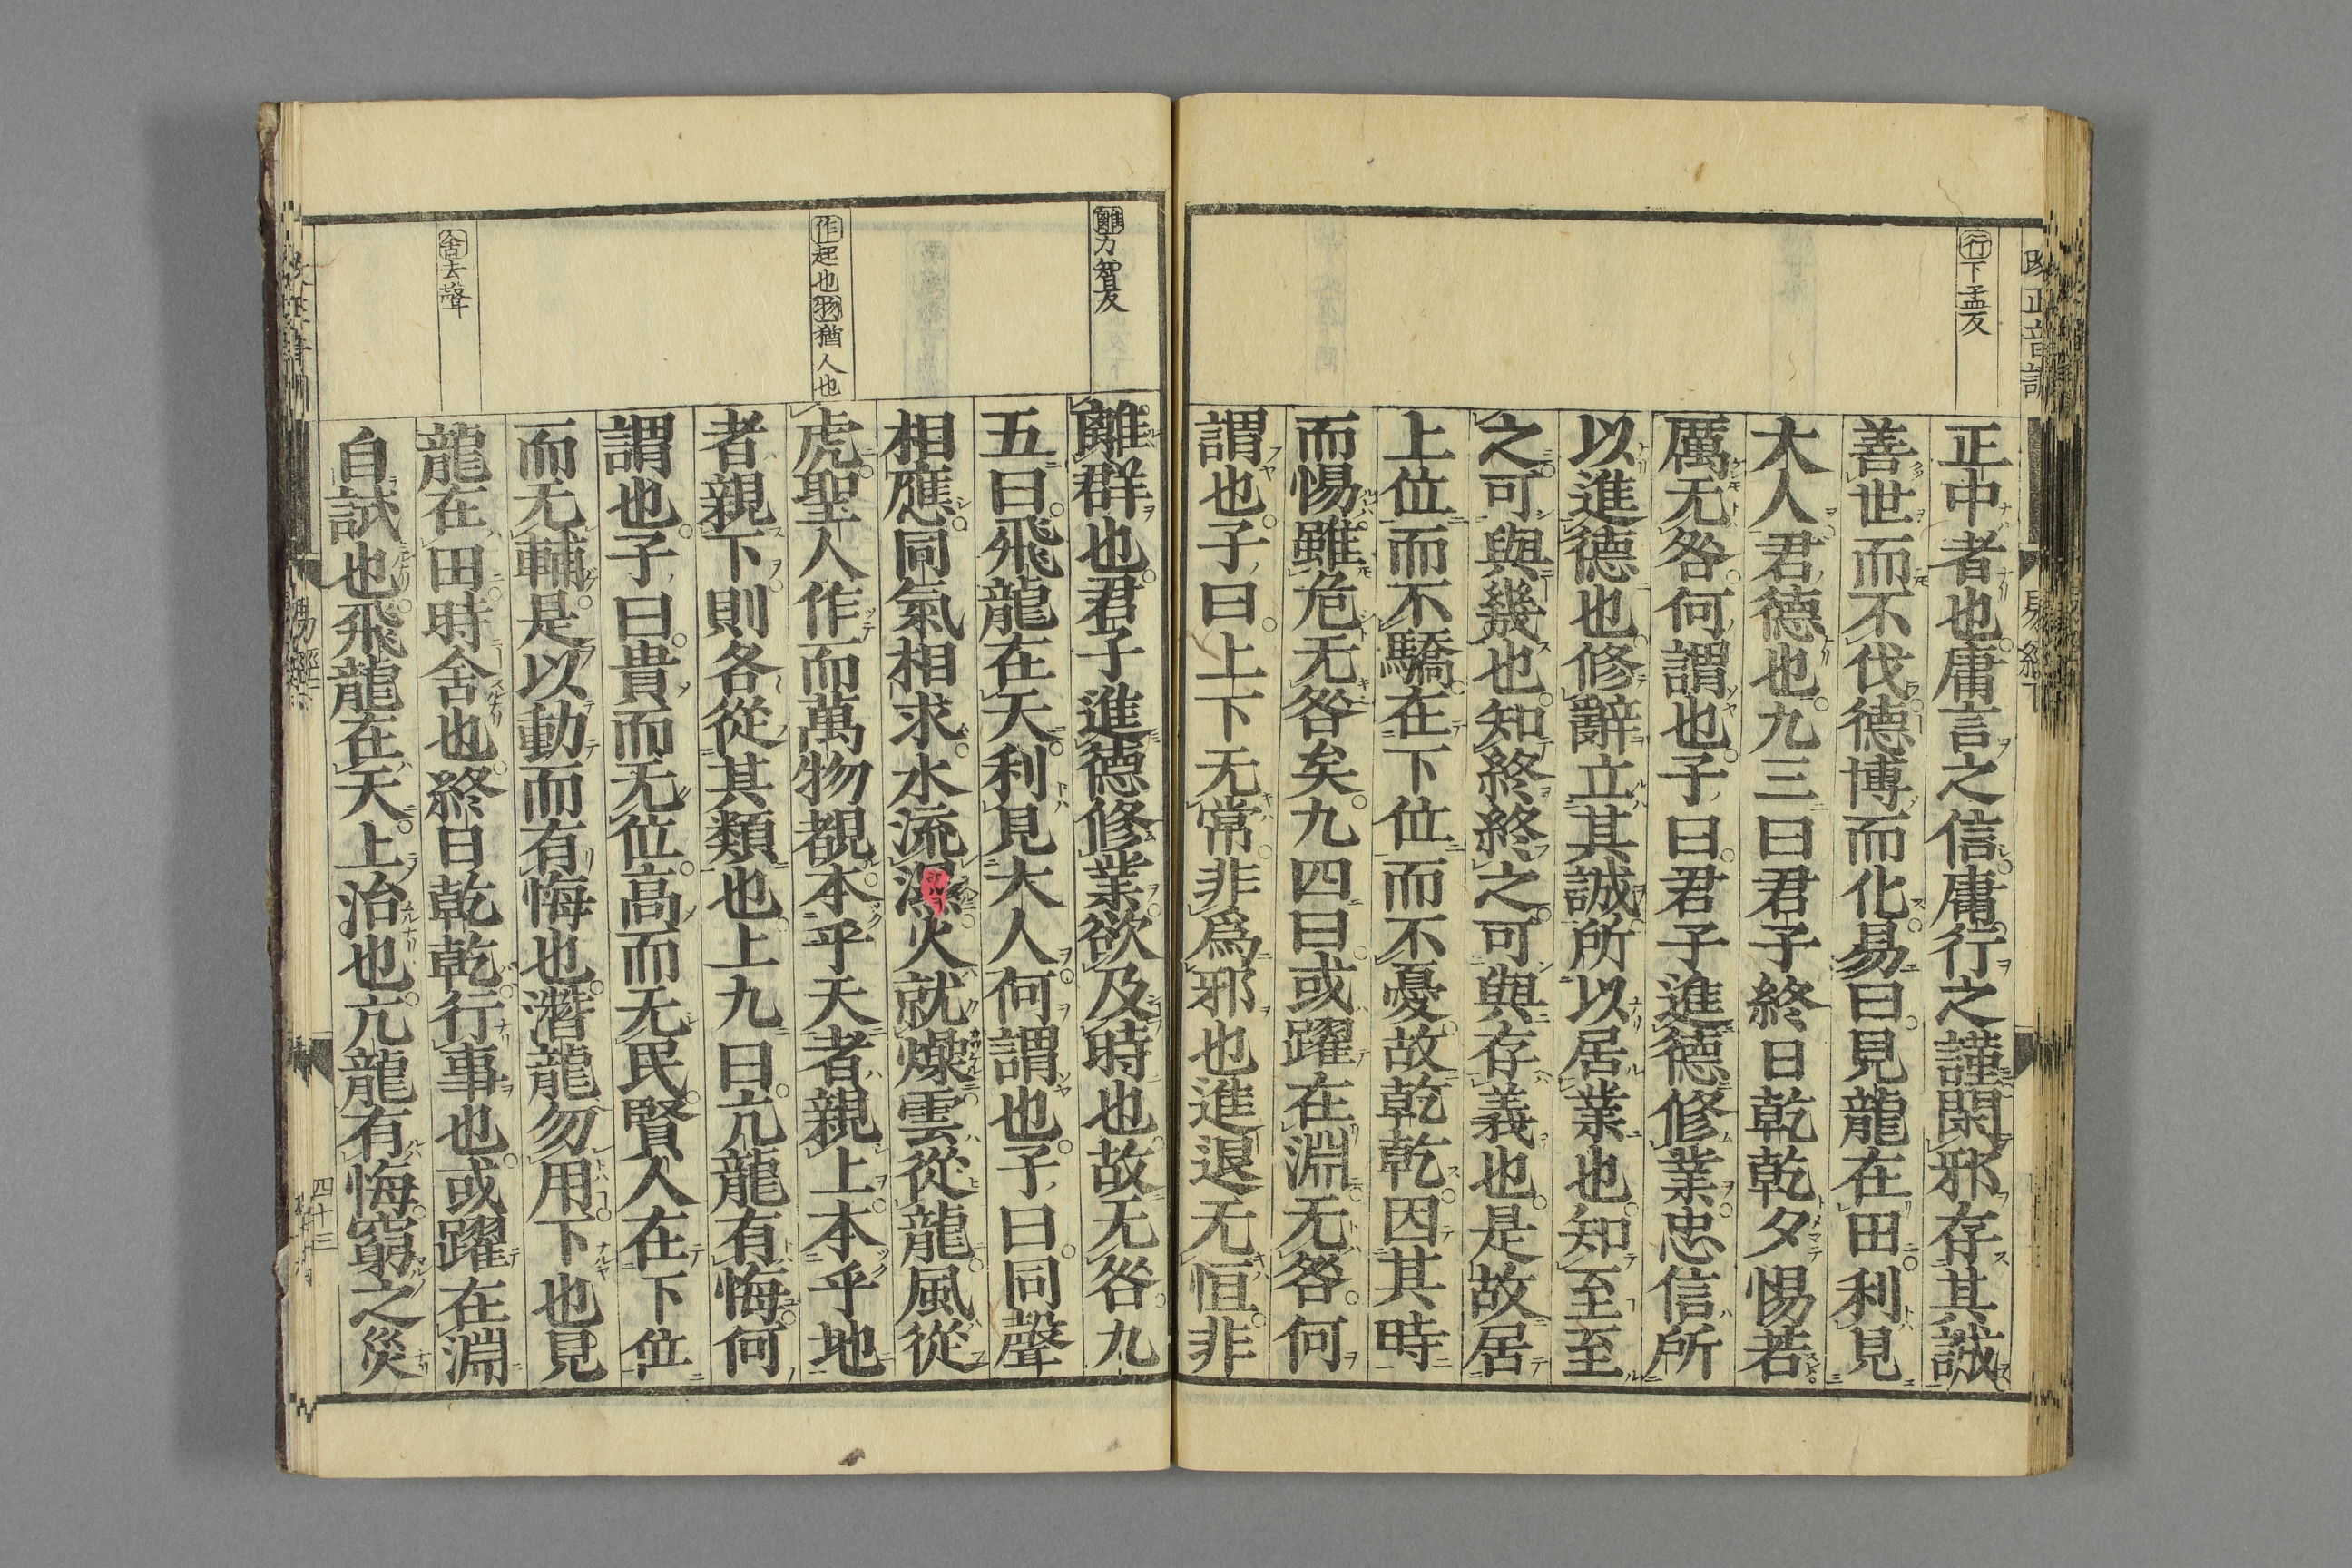 行下孟反
正中者也庸言之信庸行之謹閑邪存其誠
善世而不伐德博而化易曰見龍在田利見
大人君德也九三曰君子終日乾乾夕惕若
厲无咎何謂也子曰君子進德修業忠信所
以進德也修辭立其誠所以居業也知至至
之可與幾也知終終之可與存義也是故居
上位而不驕在下位而不憂故乾乾因其時
而惕雖危无咎矣九四曰或躍在淵无咎何
謂也子曰上下无常非爲邪也進退无恒非
離力智反
作起也物猶人也
舍去聲
離群也君子進德修業欲及時也故无咎九
五曰飛龍在天利見大人何謂也子曰同聲
相應同氣相求水流濕火就燥雲從龍風從
虎聖人作而萬物覩本乎天者親上本乎地
者親下則各從其類也上九曰亢龍有悔何
謂也子曰貴而无位高而无民賢人在下位
而无輔是以動而有悔也潛龍勿用下也見
龍在田時舍也終日乾乾行事也或躍在淵
自試也飛龍在天上治也亢龍有悔窮之災
四十三